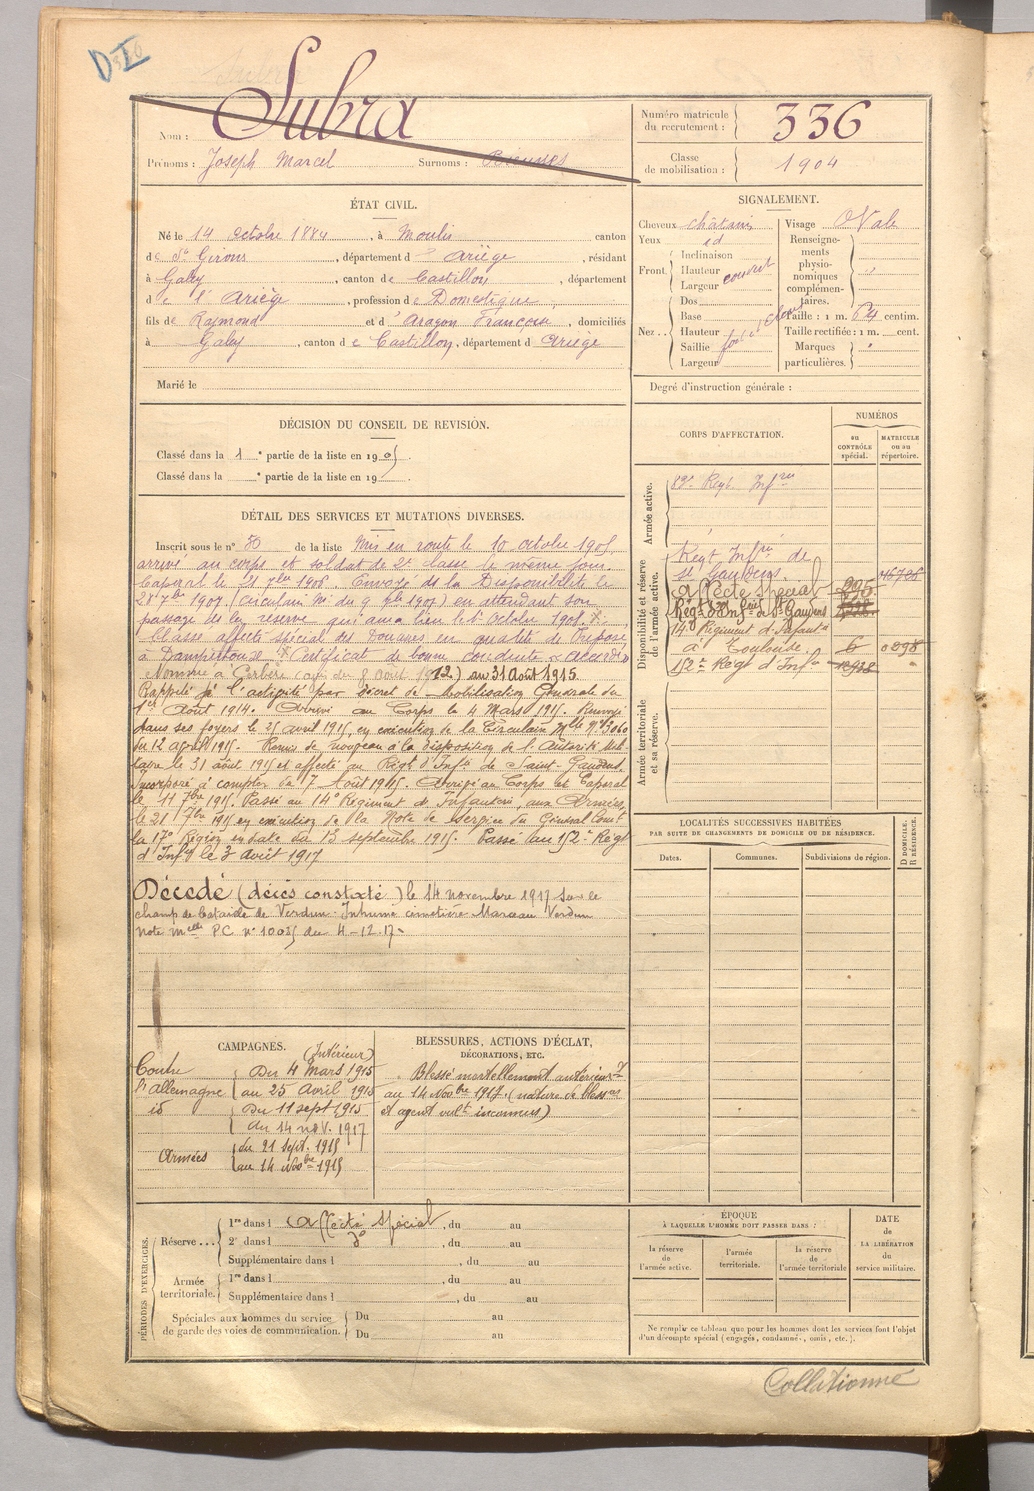 Nom : Subra
Prénoms : Joseph Marcel Surnoms :
Numéro matricule du recrutement : 336
Classe de mobilisation : 1904
ÉTAT CIVIL.
Né le 14 Octobre 1884, à Moulis canton
de St Girons, département d Ariège, résidant
à Galey, canton de Castillon, département
de l'Ariège, profession de Domestique
fils de Raymond et d'Aragon Françoise, domiciliés
à Galey, canton de Castillon, département d Ariège
Marié le
SIGNALEMENT.
Cheveux châtain
Yeux id
Front : Inclinaison
Hauteur couvert
Largeur
Nez : Dos
Base
Hauteur
Saillie
Largeur
Visage Ovale
Renseignements physionomiques complémentaires. "
Taille : 1 m. 64 centim.
Taille rectifiée : 1 m. cent.
Marques particulières.
Degré d'instruction générale :
DÉCISION DU CONSEIL DE REVISION.
Classé dans la 1e partie de la liste en 1905
Classé dans la e partie de la liste en 19
DÉTAIL DES SERVICES ET MUTATIONS DIVERSES.
Inscrit sous le n° 80 de la liste Mis en route le 10 octobre 1905,
arrivé au corps et soldat de 2e classe le même jour.
Caporal le 21 7bre 1906. Envoyé dans la Disponibilité le
28 7bre 1907 (circulaire Mlle du 9 1907) en attendant son
passage dans la réserve qui aura lieu le 1er Octobre 1908.
Classé affecté spécial des Douanes en qualité de Préposé
à Certificat de bonne conduite accordé
Nommé à Cerbère (avis du 8 août 1912) au 31 Août 1915.
Rappelé à l'activité par décret de Mobilisation Générale du
1er Août 1914. Arrivé au Corps le 4 Mars 1915. Renvoyé
dans ses foyers le 25 avril 1915, en exécution de la Circulaire Mlle n°
du 12 avril 1915. Remis de nouveau à la disposition de l'Autorité Mili-
taire le 31 août 1915 et affecté au Régt d'Infie de Saint-Gaudens.
Incorporé à compter du 7 Août 1915. Arrivé au Corps et Caporal
le 11 7bre 1915. Passé au 14e Régiment d'Infanterie, aux Armées,
le 21 7bre 1915 en exécution de la Note de Service du Général Comt
la 17e Région en date du 13 septembre 1915. Passé au 152e Régt
d'Infie le 3 août 1917
Décédé (décès constaté) le 14 novembre 1917 sur le
champ de bataille de Verdun. Inhumé cimetière Marceau Verdun
Note melle P.C. n° 10035 du 4-12-17-
CORPS D'AFFECTATION.
NUMÉROS
au CONTRÔLE spécial.
MATRICULE ou au répertoire.
Armée active.
Regt Infrie
Disponibilité et réserve de l'armée active.
Regt Infrie de
St Gaudens.
affecté spécial
Régt d'Infrie de St Gaudens
14e Régiment d'Infanterie
à Toulouse. 6
152e Régt d'Infie
Armée territoriale et sa réserve.
LOCALITÉS SUCCESSIVES HABITÉES
PAR SUITE DE CHANGEMENTS DE DOMICILE OU DE RÉSIDENCE.
Dates. Communes. Subdivisions de région. D DOMICILE. R RÉSIDENCE.
CAMPAGNES.
(Intérieur)
Contre Du 4 Mars 1915
l'allemagne au 25 Avril 1915
id Du 11 sept 1915
au 14 nov. 1917
Armées du 21 Sept. 1915
au 14 Novbre 1915
BLESSURES, ACTIONS D'ÉCLAT,
DÉCORATIONS, ETC.
Blessé mortellement antérieurt
au 14 Novbre 1917. (nature de blessres
et agent vulnt inconnus)
PÉRIODES D'EXERCICES.
Réserve... 1re dans l affecté spécial, du au
2e dans l do, du au
Supplémentaire dans l, du au
Armée territoriale. 1re dans l, du au
Supplémentaire dans l, du au
Spéciales aux hommes du service de garde des voies de communication. Du au
Du au
ÉPOQUE
À LAQUELLE L'HOMME DOIT PASSER DANS :
la réserve de l'armée active.
l'armée territoriale.
la réserve de l'armée territoriale
DATE de LA LIBÉRATION du service militaire.
Ne remplir ce tableau que pour les hommes dont les services font l'objet
d'un décompte spécial (engagés, condamnés, omis, etc.).
Collationné